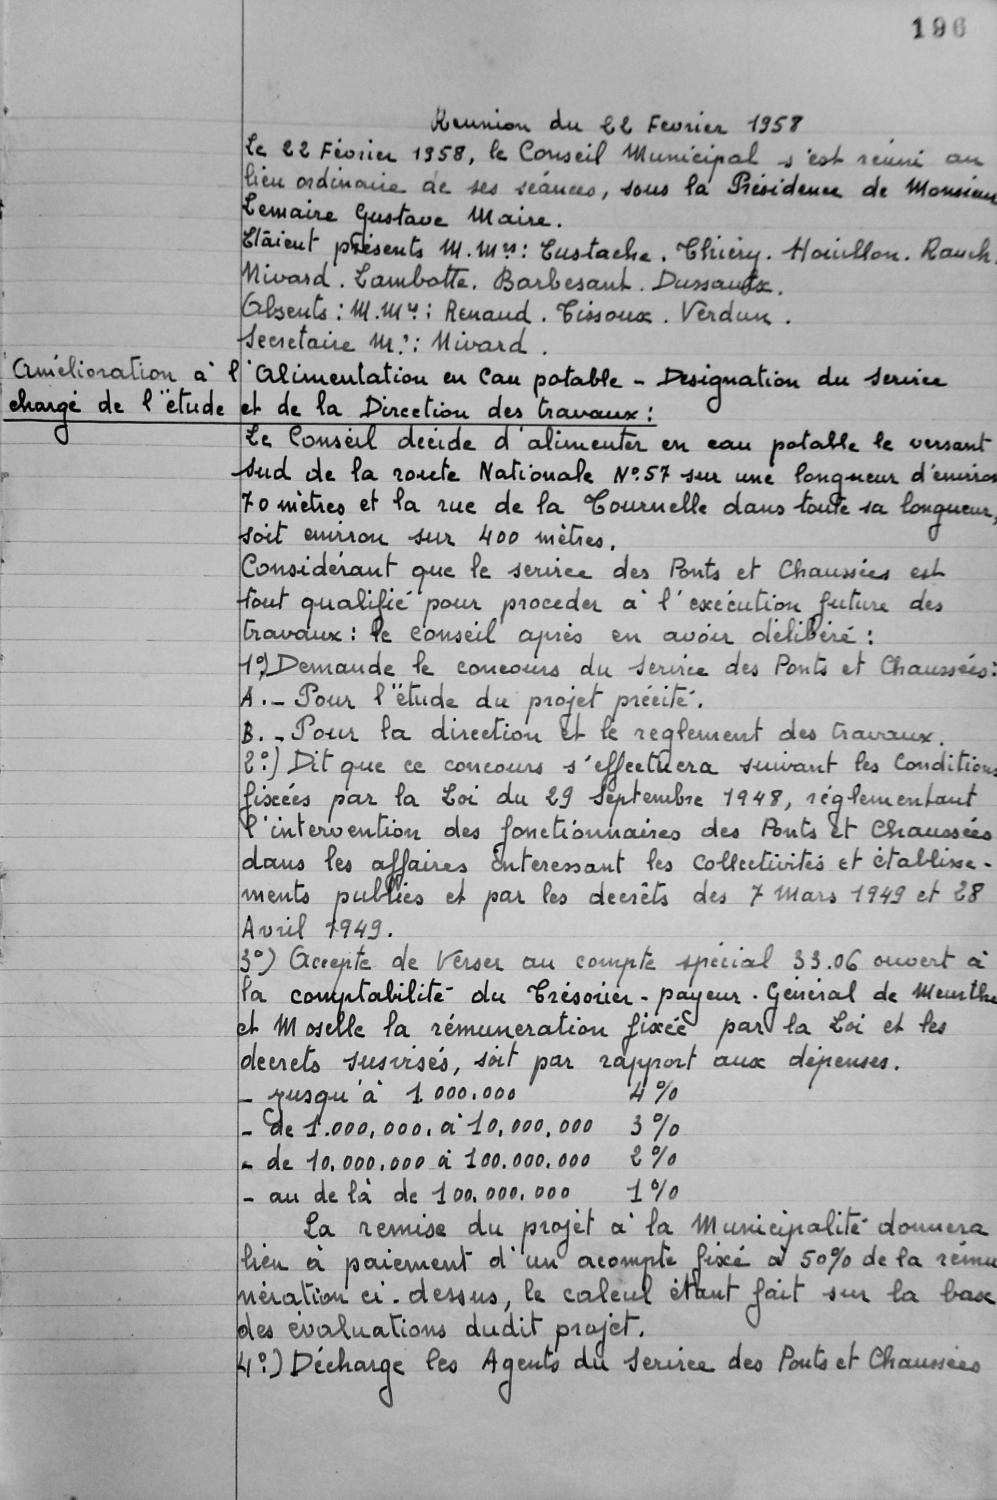 196
Reunion du 22 Fevrier 1958
Le 22 Février 1958, le Conseil Municipal s'est réuni au
lieu ordinaire de ses séances, sous la Présidence de Monsieur
Lemaire Gustave Maire.
Etaient présents M.Mrs: Eustache. Thiéry. Houillon. Rauch.
Nivard. Lambotte. Barbesant. Dussaulx.
Absents: M.Mrs: Renaud. Tissoux. Verdun.
Secretaire Mr: Nivard.
Amélioration à l'Alimentation en Eau potable - Designation du service
chargé de l'étude et de la Direction des travaux:
Le Conseil décide d'alimenter en eau potable le versant
sud de la route Nationale N°.57 sur une longueur d'environ
70 mètres et la rue de la Tournelle dans toute sa longueur,
soit environ sur 400 mètres.
Considérant que le service des Ponts et Chaussées est
tout qualifié pour proceder à l'exécution future des
travaux: le conseil après en avoir délibéré:
1°) Demande le concours du service des Ponts et Chaussées:
A.- Pour l'étude du projet précité.
B.- Pour la direction et le reglement des travaux.
2°.) Dit que ce concours s'effectuera suivant les Conditions
fixées par la Loi du 29 Septembre 1948, réglementant
l'intervention des fonctionnaires des Ponts et Chaussées
dans les affaires interessant les Collectivités et établisse-
ments publics et par les decrêts des 7 Mars 1949 et 28
Avril 1949.
3°) Accepte de Verser au compte spécial 33.06 ouvert à
la comptabilité du Trésorier-payeur-Général de Meurthe
et Moselle la rémuneration fixée par la Loi et les
decrets susvisés, soit par rapport aux dépenses.
- jusqu'à 1.000.000 4%
- de 1.000.000. à 10.000.000 3%
- de 10.000.000 à 100.000.000 2%
- au de là de 100.000.000 1%
La remise du projet à la Municipalité donnera
lieu à paiement d'un acompte fixé à 50% de la rému
nération ci-dessus, le calcul étant fait sur la base
des évaluations dudit projet.
4°.) Décharge les Agents du Service des Ponts et Chaussées